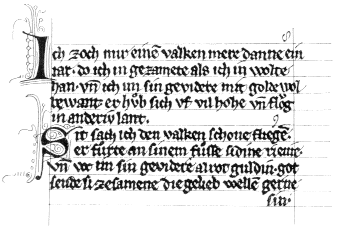 Ich zoch mir einē valken mere danne ein
iar. do ich in gezamete als ich in wolte
han. vn̄ ich im sin gevidere mit golde wol
bewant er hůb sich vf vil hohe vn̄ flǒg
in anderiv lant.
Sit sach ich den valken schone fliegē.
er fůrte an sinem fůsse sidine rieme.
vn̄ was im sin gevidere alrot guldin. got
sende si zesamene die gelieb wellē gerne
sin.